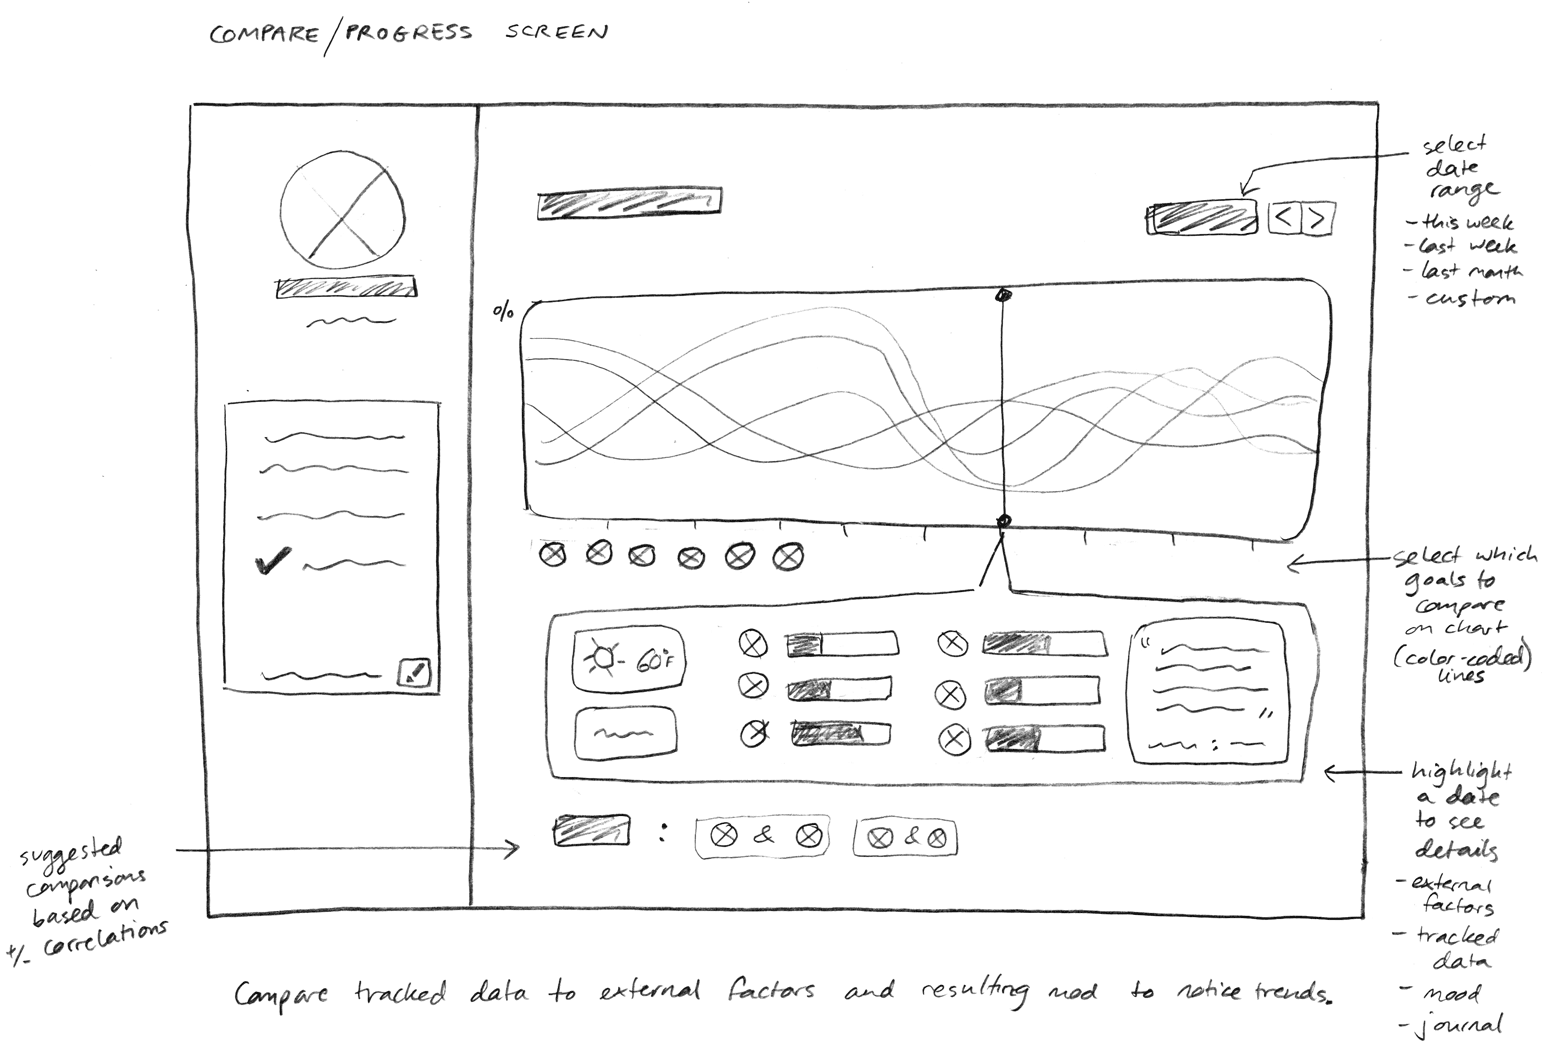 COMPARE/PROGRESS SCREEN
select
date
range
- this week
- last week
- last month
- custom
< >
%
select which
goals to
compare
on chart
(color-coded)
lines
60°F
“
”
:
highlight
a date
to see
details
- external
factors
- tracked
data
- mood
- journal
: & &
suggested
comparisons
based on
+/- correlations
Compare tracked data to external factors and resulting mood to notice trends.